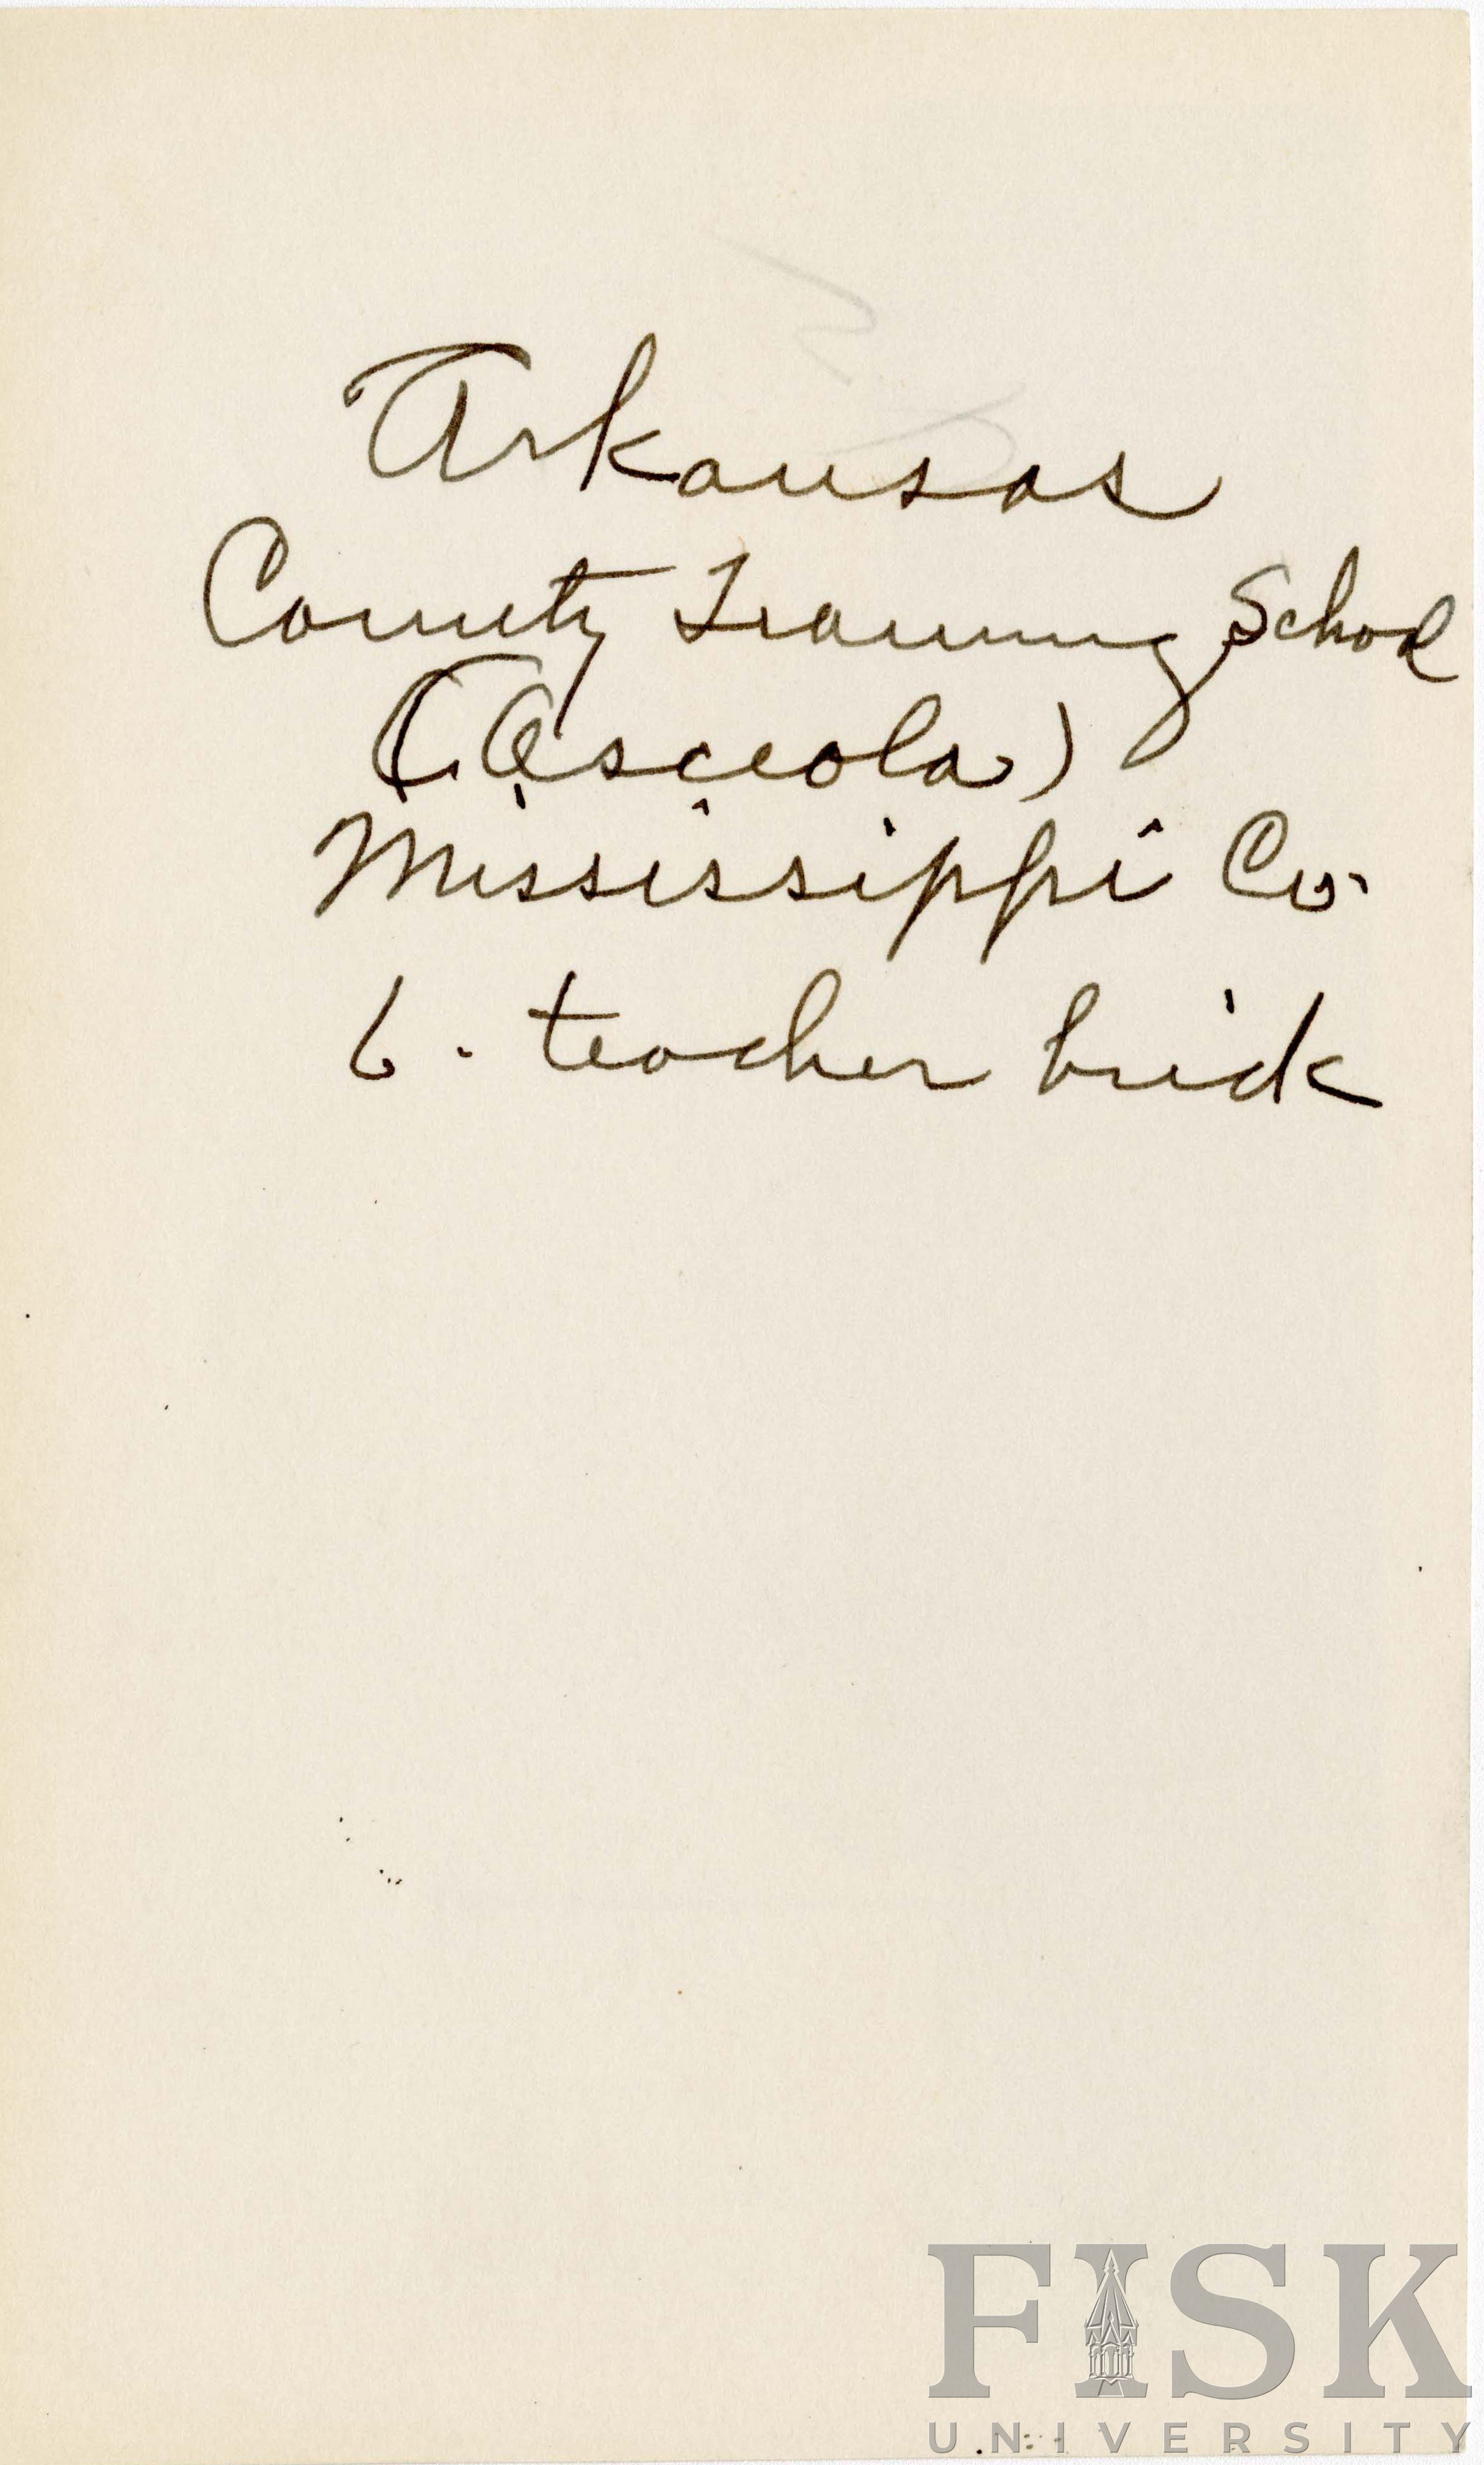 Arkansas
County Training School
(Osceola)
Mississippi Co.
6. teacher brick
FISK
UNIVERSITY